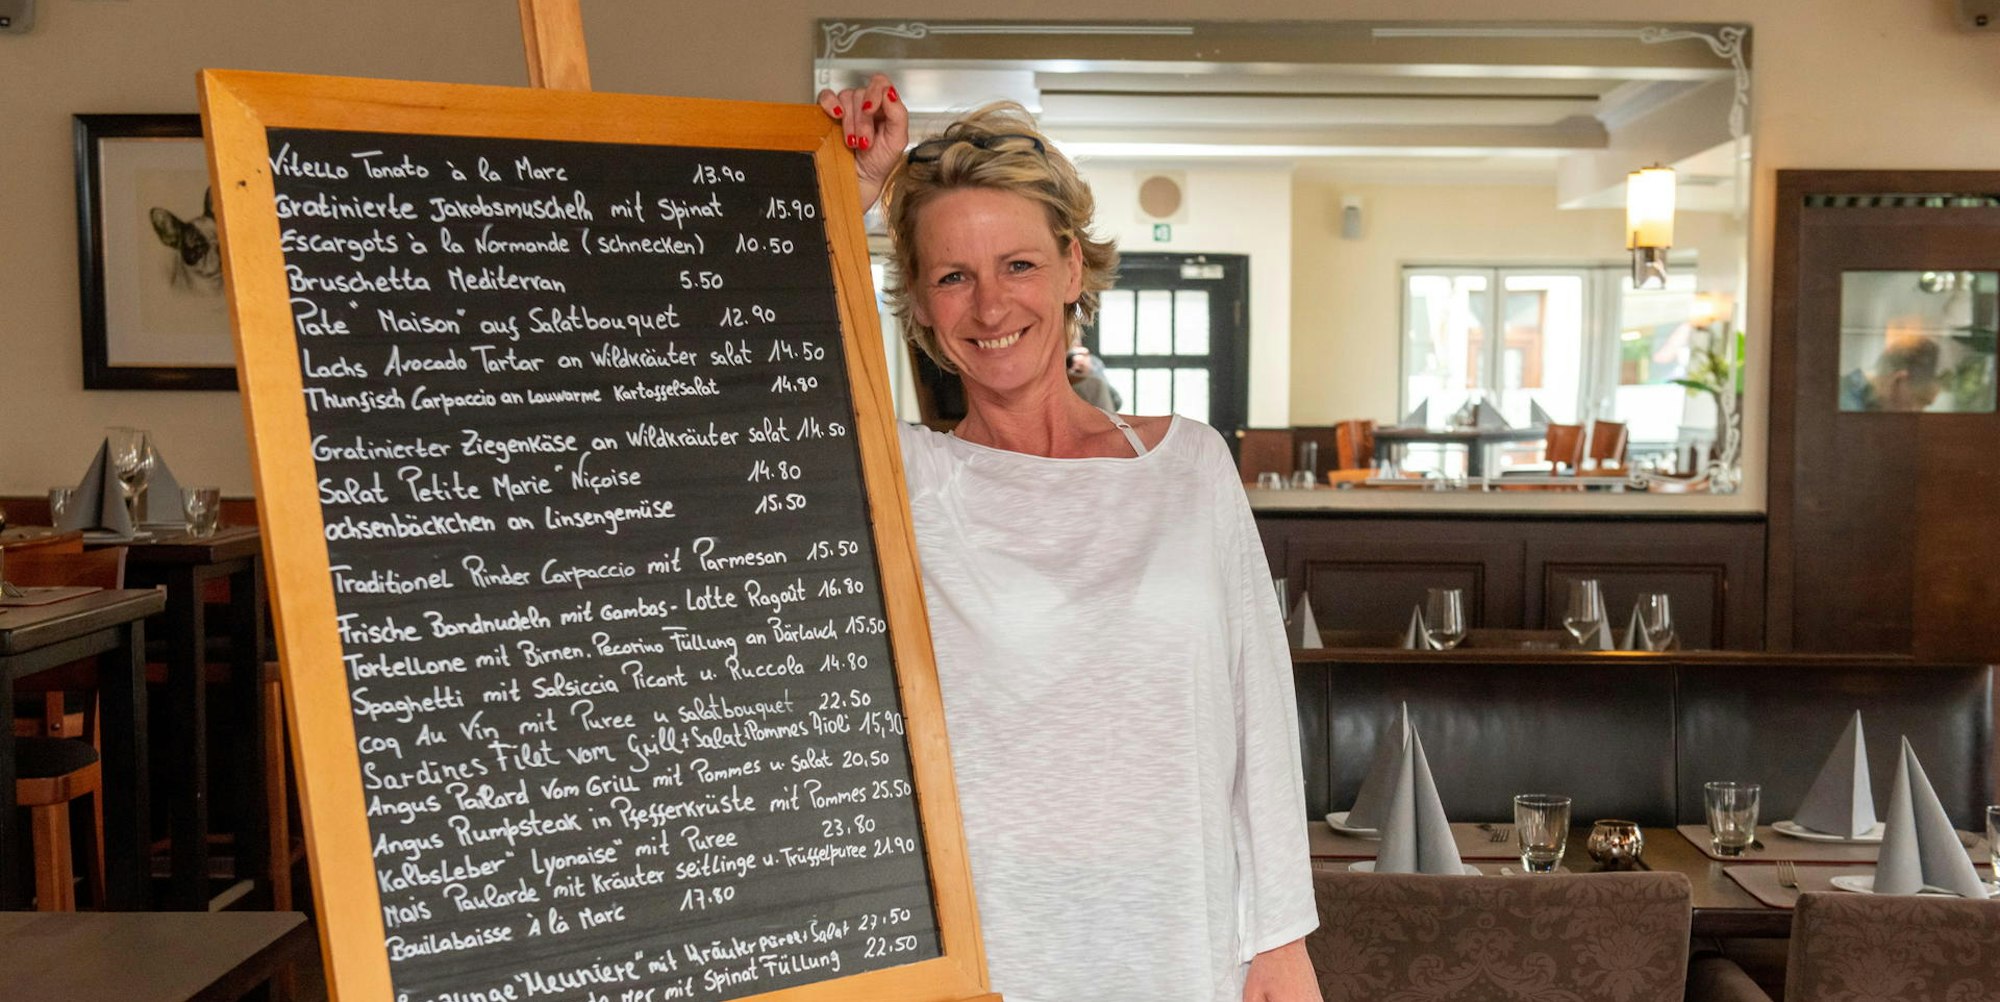 Vitello Tonato à la Marc 13.90
Gratinierte Jakobsmuscheln mit Spinat 15.90
Escargots à la Normande (schnecken) 10.50
Bruschetta Mediterran 5.50
Pate "Maison" auf Salatbouquet 12.90
Lachs Avocado Tartar an Wildkräuter salat 14.50
Thunfisch Carpaccio an lauwarme Kartoffelsalat 14.90
Gratinierter Ziegenkäse an Wildkräuter salat 14.50
Salat Petite Marie" Niçoise 14.80
ochsenbäckchen an Linsengemüse 15.50
Traditionel Rinder Carpaccio mit Parmesan 15.50
Frische Bandnudeln mit Gambas-Lotte Ragoût 16.80
Tortellone mit Birnen. Pecorino Füllung an Bärlauch 15.50
Spaghetti mit Salsiccia Picant u. Ruccola 14.80
Coq Au Vin mit Puree u salatbouquet 22.50
Sardines Filet vom Grill+Salat+Pommes Aioli 15,90
Angus Pailard vom Grill mit Pommes u. salat 20,50
Angus Rumpsteak in Pfefferkrüste mit Pommes 25.50
Kalbsleber "Lyonaise" mit Puree 23.80
Mais Paularde mit Kräuter seitlinge u. Trüffelpuree 21.90
Bouilabaisse À là Marc 17.80
"Meuniere" mit Kräuterpüree+Salat 27.50
mer mit Spinat Füllung 22.50